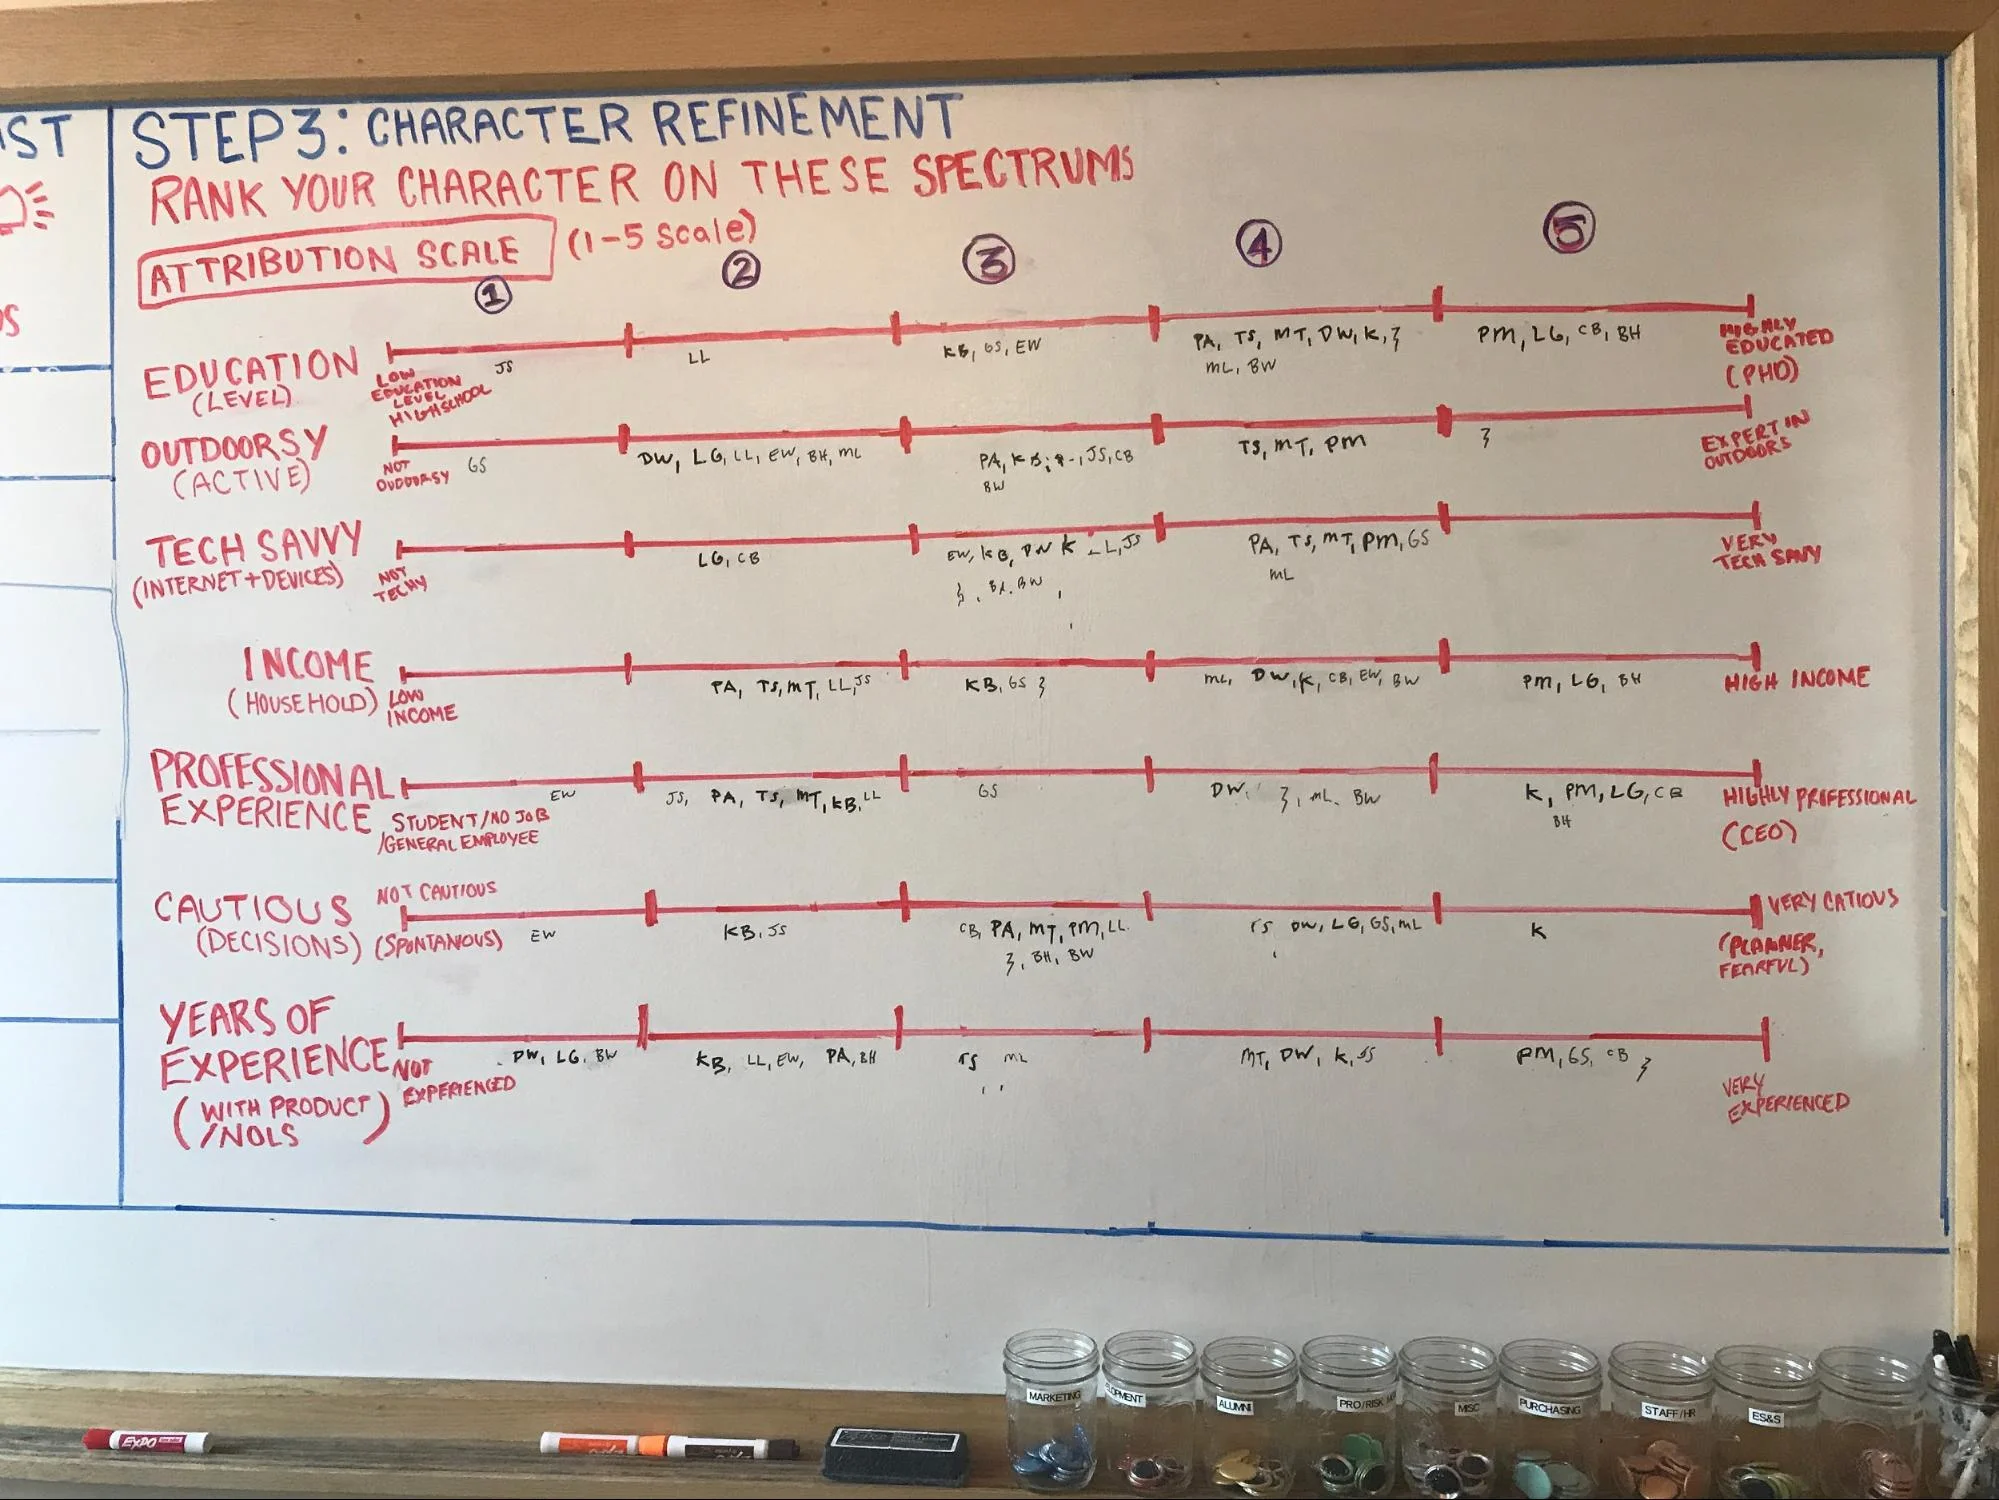 IST
STEP 3: CHARACTER REFINEMENT
RANK YOUR CHARACTER ON THESE SPECTRUMS
ATTRIBUTION SCALE (1-5 scale)
1 2 3 4 5
EDUCATION
(LEVEL)
LOW
EDUCATION
LEVEL
HIGHSCHOOL
JS
LL
KB, GS, EW
PA, TS, MT, DW, K, }
ML, BW
PM, LG, CB, BH
HIGHLY
EDUCATED
(PHD)
OUTDOORSY
(ACTIVE)
NOT
OUDOORSY
GS
DW, LG, LL, EW, BH, ML
PA, K B, JS, CB
BW
TS, MT, PM
}
EXPERT IN
OUTDOORS
TECH SAVVY
(INTERNET + DEVICES)
NOT
TECHY
LG, CB
EW, KB, DW K L, JS
}, BW
PA, TS, MT, PM, GS
ML
VERY
TECH SAVY
INCOME
(HOUSEHOLD)
LOW
INCOME
PA, TS, MT, LL, JS
KB, GS }
ML, DW, K, CB, EW, BW
PM, LG, BH
HIGH INCOME
PROFESSIONAL
EXPERIENCE
STUDENT/NO JOB
/GENERAL EMPLOYEE
EW
JS, PA, TS, MT, KB, LL
GS
DW, }, ML. BW
K, PM, LG, CB
BH
HIGHLY PRIFESSIONAL
(CEO)
CAUTIOUS
(DECISIONS)
NOT CAUTIOUS
(SPONTANIOUS)
EW
KB, JS
CB, PA, MT, PM, LL
}, BH, BW
TS DW, LG, GS, ML
K
VERY CATIOUS
(PLANNER,
FEARFUL)
YEARS OF
EXPERIENCE
(WITH PRODUCT)
/NOLS
NOT
EXPERIENCED
DW, LG, BW
KB, LL, EW, PA, BH
TS ML
MT, DW, K, JS
PM, GS, CB }
VERY
EXPERIENCED
EXPO
MARKETING
LOPMENT
ALUMNI
PRO/RISK
MISC
PURCHASING
STAFF/HR
ES&S